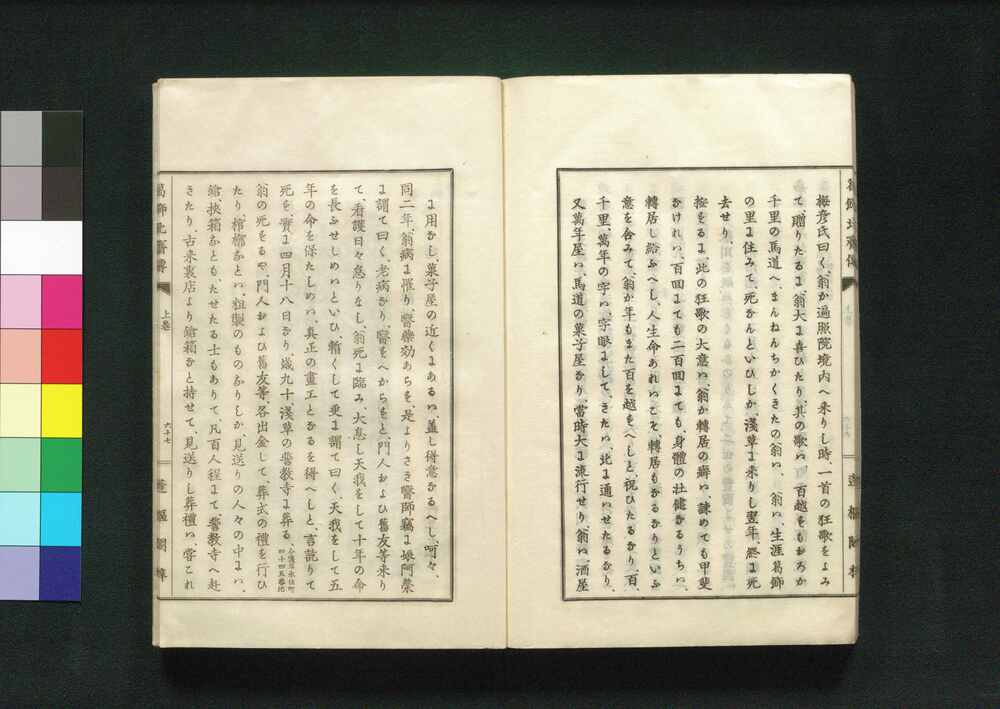 梅彦氏曰く、翁か遍照院境内へ来りし時、一首の狂歌をよみ
て、贈りたるに、翁大に喜ひたり、其の歌ハ、百越をもおろか
千里の馬道へ、まんねんちかくきたの翁ハ、翁ハ、生涯葛飾
の里に住みて、死なんといひしか、浅草に来りし翌年、終に死
去せり、
按をるに、此の狂歌の大意ハ、翁か轉居の癖ハ、諌めても甲斐
なけれハ、百回にても二百回にても、身體の壮健なるうちハ、
轉居し給ふへし、人生命あれハこそ、轉居もなるなりといふ
意を含みて、翁か年もまた百を越をへしと、祝ひたるなり、百、
千里、萬年の字ハ、字眼にして、きたハ、北に通ハせたるなり、
又萬年屋ハ、馬道の菓子屋なり、當時大に流行せり、翁ハ、酒屋
に用なし、菓子屋の近くにあるハ、蓋し得意なるへし、呵々、
同二年、翁病に罹り、醫藥効あらを、是よりさき醫師竊に娘阿榮
に謂て曰く、老病なり、醫をへからをと、門人および舊友等来り
て、看護日々怠りなし、翁死に臨み、大息し天我をして十年の命
を長ふせしめハといひ、暫くして更に謂て曰く、天我をして五
年の命を保たしめハ、真正の畫工となるを得へしと、言訖りて
死を、實に四月十八日なり、歳九十、浅草の誓教寺に葬る、
今浅草永住町
四十四五番地
翁の死をるや、門人および舊友等、各出金して、葬式の禮を行ひ
たり、棺槨なとハ、粗製のものなりしか、見送りの人々の中にハ、
鎗、挟箱なとも、たせたる士もありて、凡百人程にて、誓教寺へ赴
きたり、古来裏店より鎗箱なと持せて、見送りし葬禮ハ、甞これ
葛飾北齋傳
上巻
六十七
蓬樞閣梓